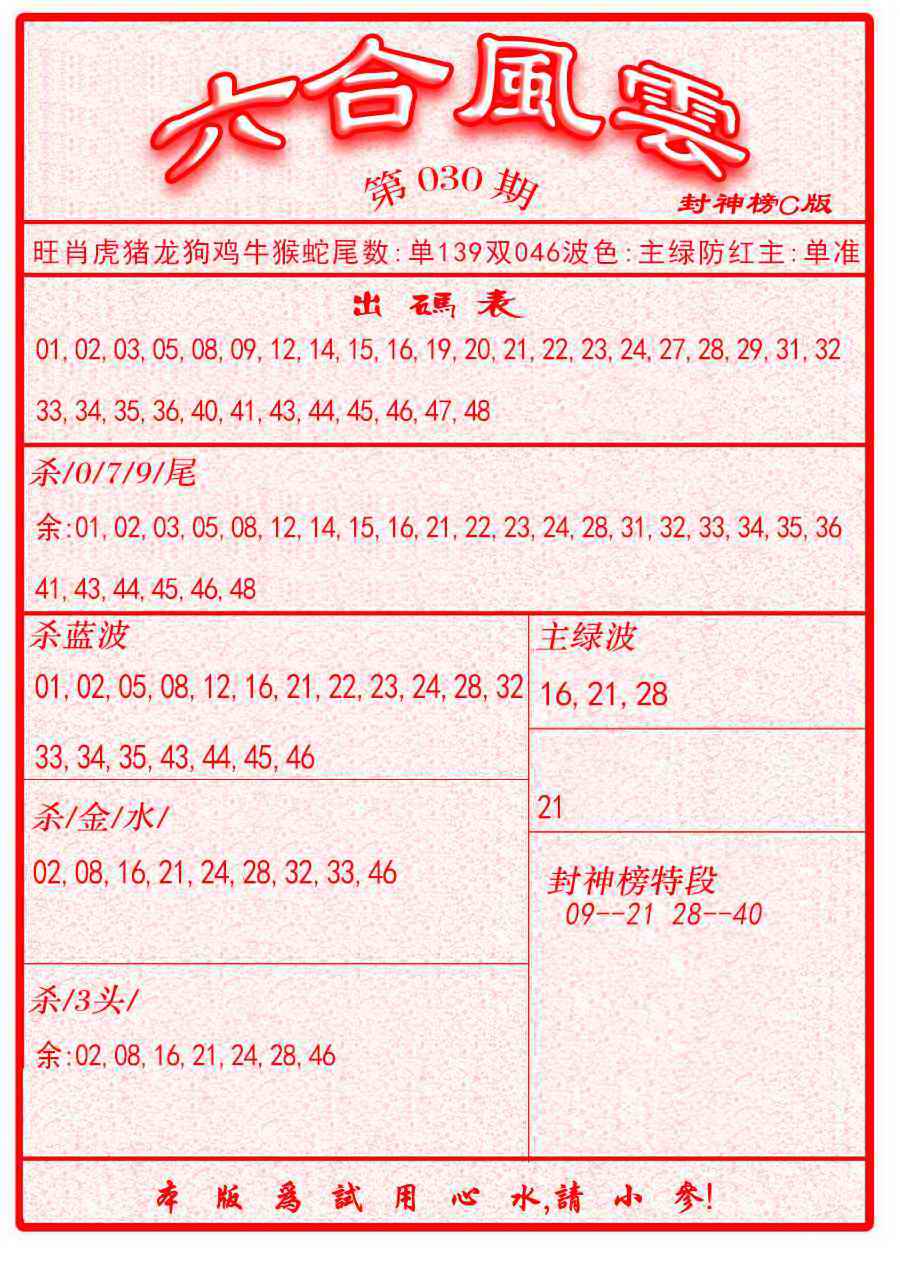 六合風雲
第030期
封神榜C版
旺肖虎猪龙狗鸡牛猴蛇尾数:单139双046波色:主绿防红主:单准
出碼表
01,02,03,05,08,09,12,14,15,16,19,20,21,22,23,24,27,28,29,31,32
33,34,35,36,40,41,43,44,45,46,47,48
杀/0/7/9/尾
余:01,02,03,05,08,12,14,15,16,21,22,23,24,28,31,32,33,34,35,36
41,43,44,45,46,48
杀蓝波
01,02,05,08,12,16,21,22,23,24,28,32
33,34,35,43,44,45,46
主绿波
16,21,28
21
杀/金/水/
02,08,16,21,24,28,32,33,46
封神榜特段
09--21 28--40
杀/3头/
余:02,08,16,21,24,28,46
本版爲試用心水,請小參!